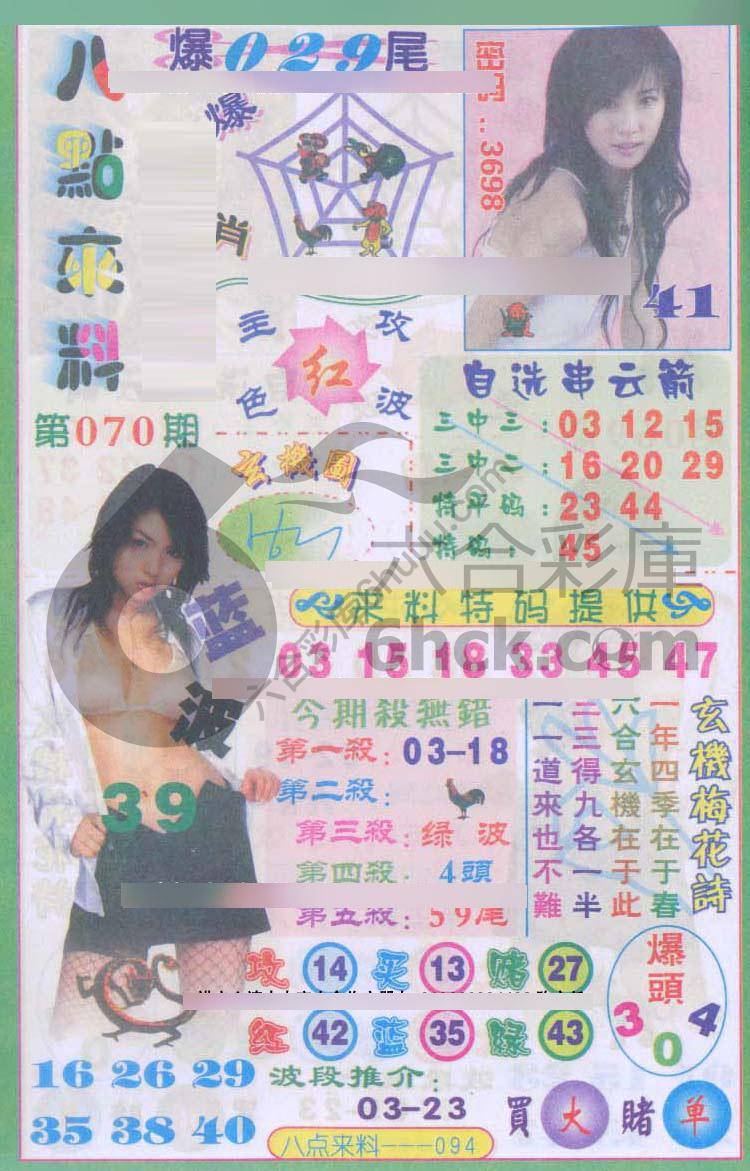 八點來料
爆029尾
爆
肖
密码：3698
41
主攻
红
色波
第070期
玄機圖
自选串云箭
三中三：03 12 15
三中二：16 20 29
特平码：23 44
特码：45
六合彩庫
6hck.com
来料特码提供
03 15 18 33 45 47
蓝波
39
今期殺無錯
第一殺：03-18
第二殺：
第三殺：绿波
第四殺：4頭
第五殺：59尾
玄機梅花詩
一年四季在于春
六合玄機在于此
二三得九各一半
一一道來也不難
攻 14 买 13 赌 27
红 42 蓝 35 绿 43
爆頭
3 0 4
16 26 29
35 38 40
波段推介：
03-23
買大賭单
八点来料---094